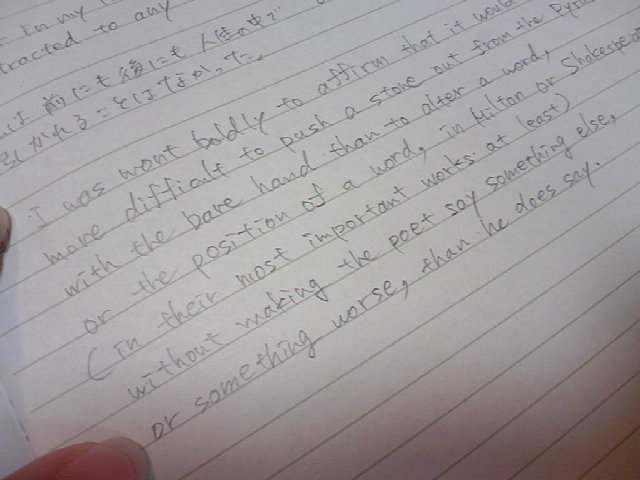 in my
tracted to any
は前にも後にも人生の中で
引かれることはなかった。
I was wont boldly to affirm that it would
more difficult to push a stone out from the Pyram
with the bare hand than to alter a word,
or the position of a word, in Milton or Shakespeare
(in their most important works at least)
without making the poet say something else,
or something worse, than he does say.